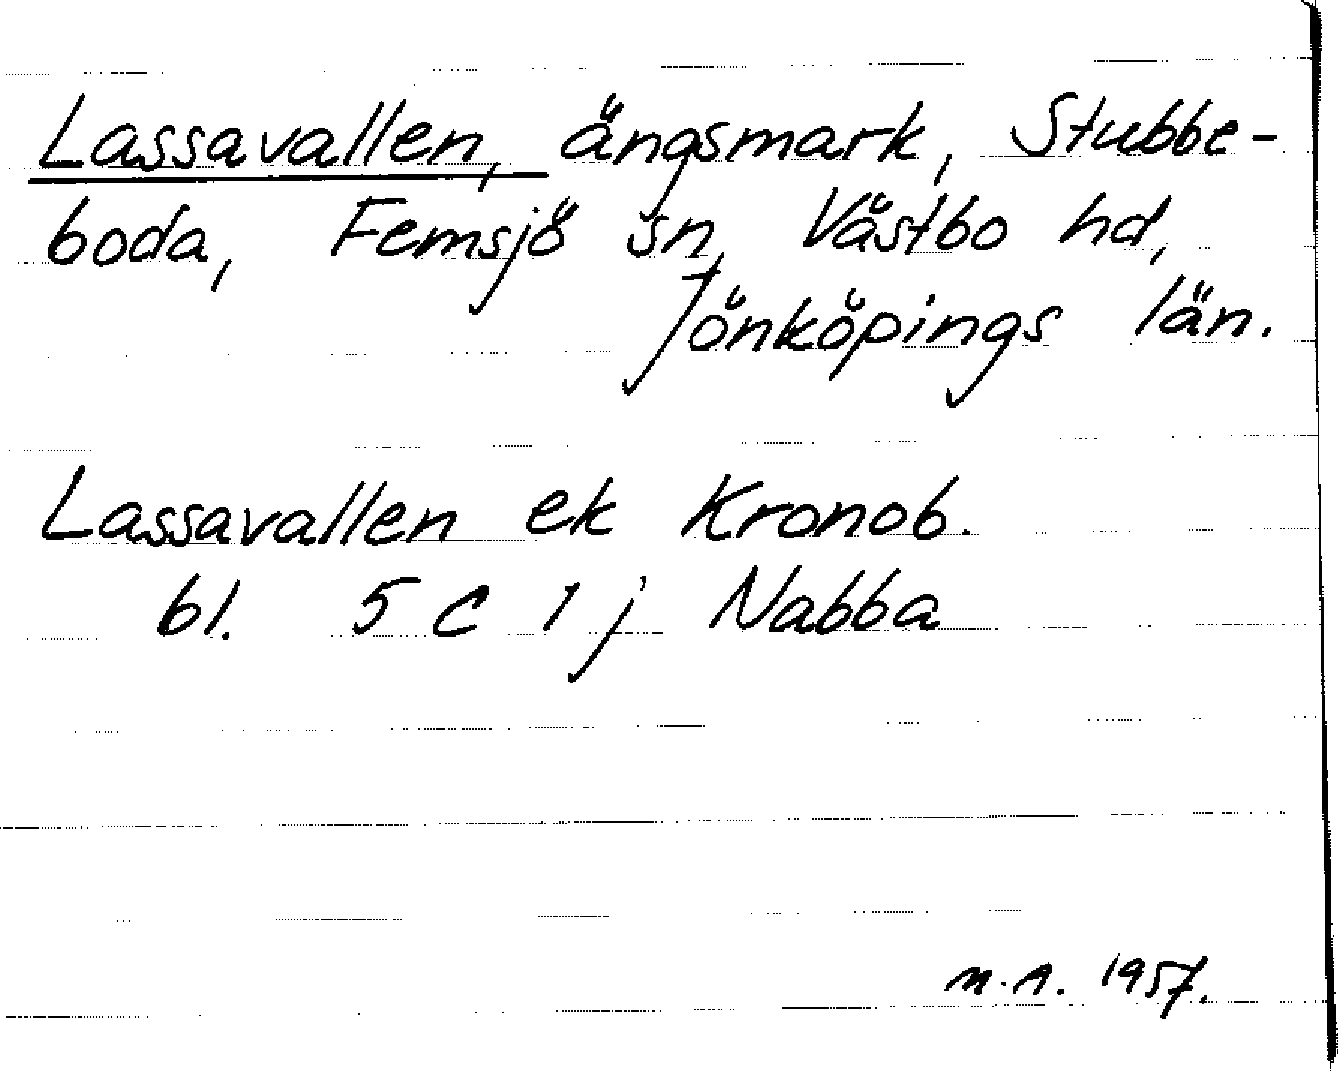 Lassavallen, ängsmark, Stubbe-
boda, Femsjö sn, Västbo hd,
Jönköpings län.
Lassavallen ek Kronob.
bl. 5 C 1 j Nabba
N.A. 1957.